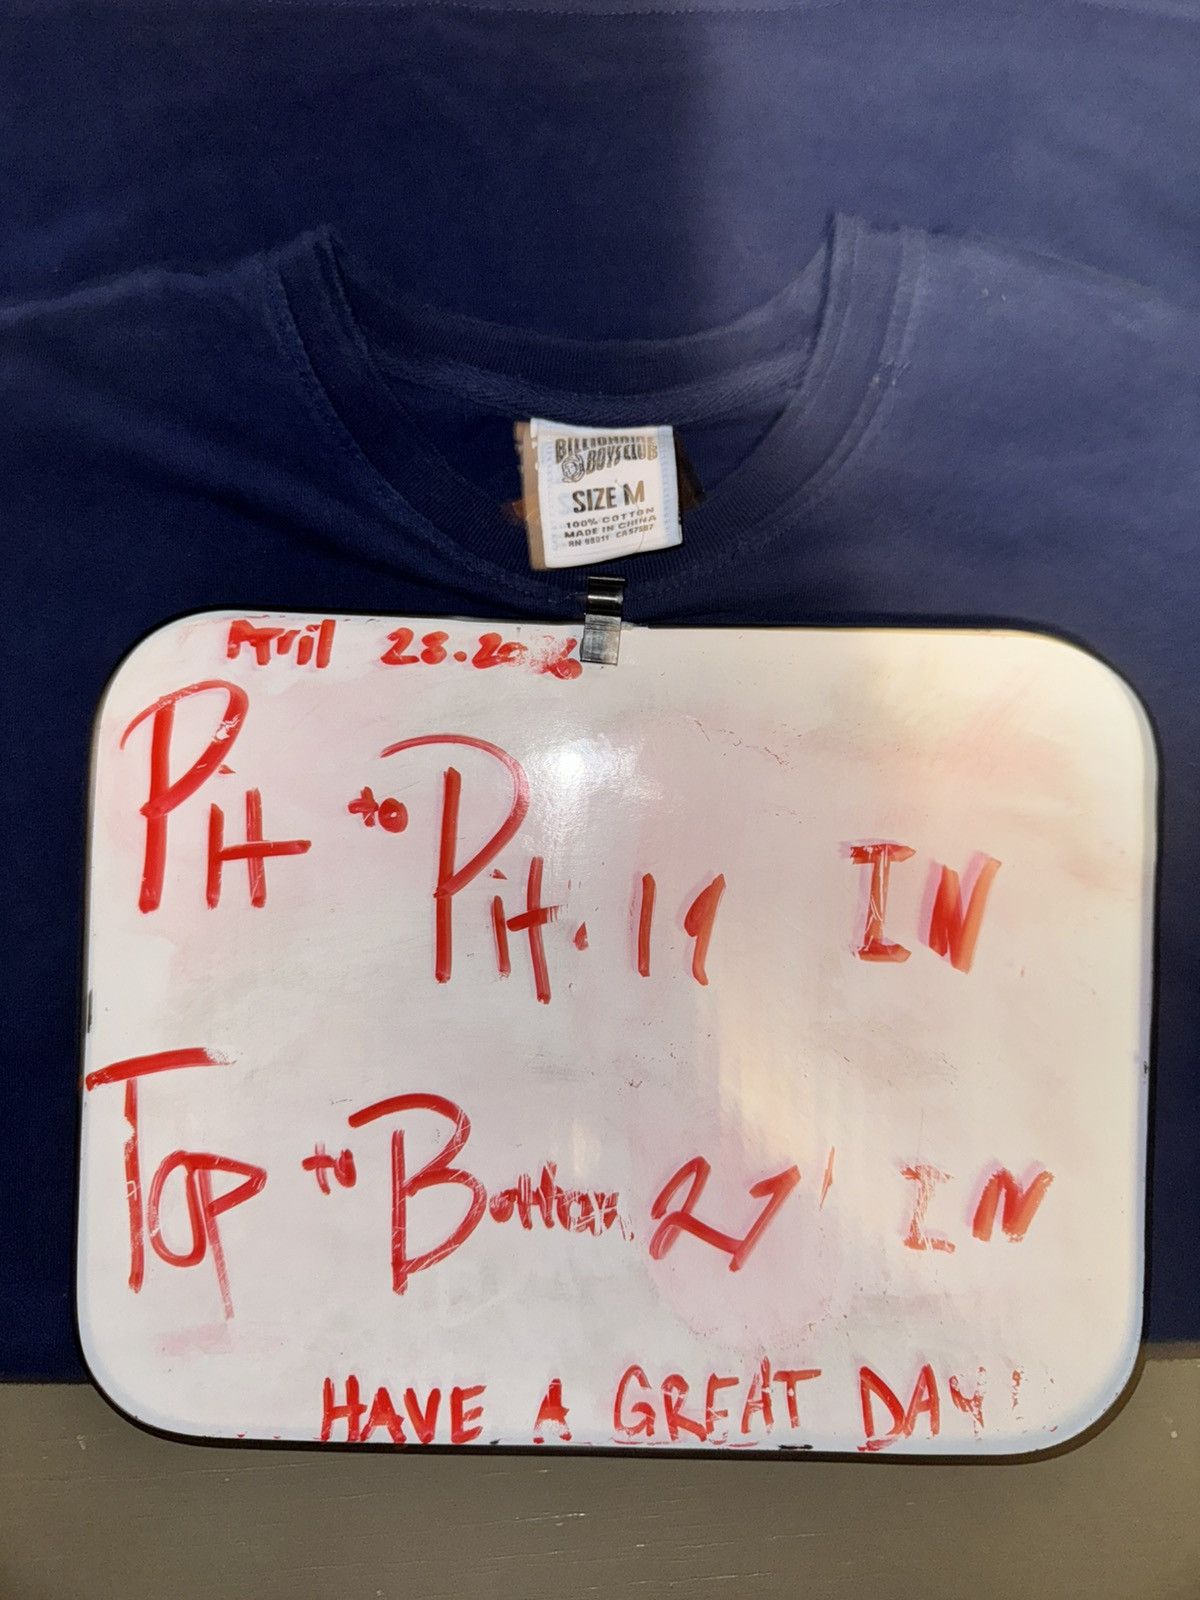 BILLIONAIRE
BOYS CLUB
SIZE M
100% COTTON
MADE IN CHINA
RN 98011 CA57587
April 28.2026
Pit to Pit. 19 IN
Top to Bottom 27' IN
HAVE A GREAT DAY!